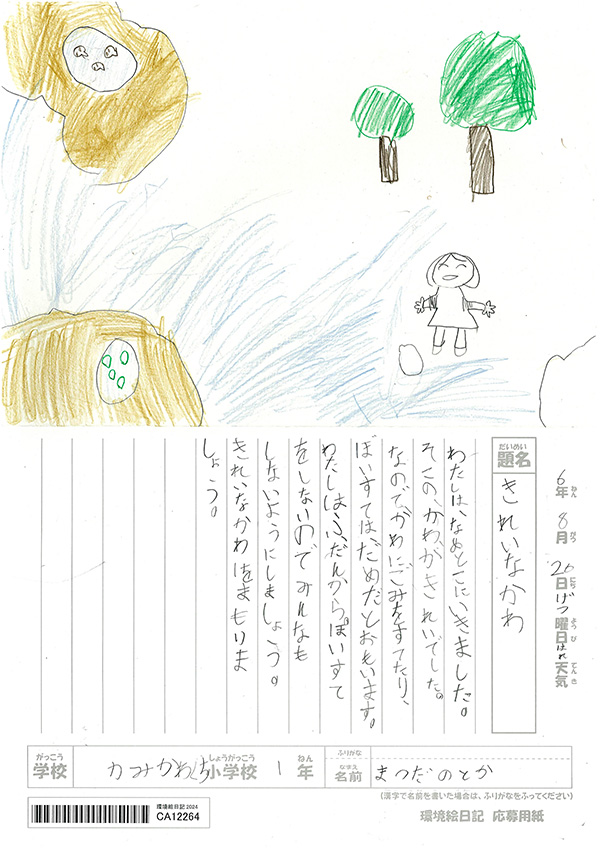 6年 8月 26日 げつ曜日 はれ 天気
ねん がつ にち ようび てんき
だいめい
題名 きれいなかわ
わたしは、なめとこにいきました。
そこの、かわ、がきれいでした。
なのでかわにごみをすてたり、
ぽいすては、だめだとおもいます。
わたしは、ふだんから。ぽいすて
をしないのでみんなも
しないようにしましょう。
きれいなかわをまもりま
しょう。
がっこう しょうがっこう ねん
学校 かみかわぐち小学校 1年
ふりがな
なまえ
名前 まつだのどか
(漢字で名前を書いた場合は、ふりがなをふってください)
環境絵日記 2024
CA12264
環境絵日記 応募用紙